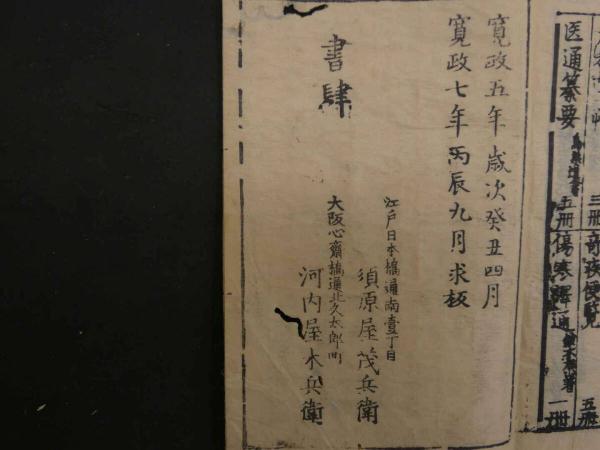 医通纂要
五冊
傷寒譯通
一冊
三冊
奇疾便覧
五冊
寛政五年歳次癸丑四月
寛政七年丙辰九月求板
書肆
江戸日本橋通南壹丁目
須原屋茂兵衛
大阪心齋橋通北久太郎町
河内屋木兵衛